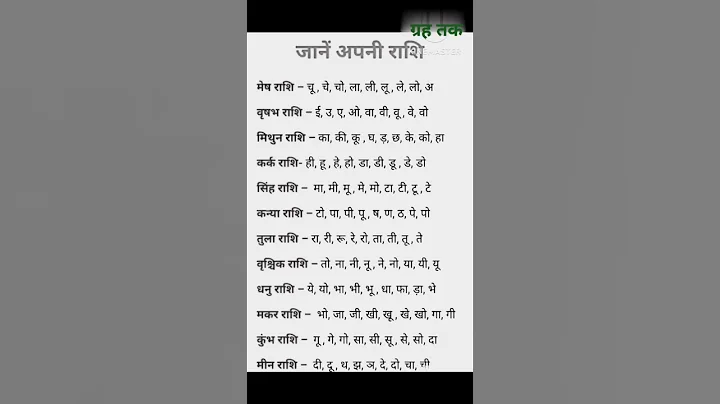 ग्रह तक
जानें अपनी राशि
मेष राशि – चू , चे, चो, ला, ली, लू , ले, लो, अ
वृषभ राशि – ई, उ, ए, ओ, वा, वी, वू , वे, वो
मिथुन राशि – का, की, कू , घ, ड़, छ, के, को, हा
कर्क राशि- ही, हू , हे, हो, डा, डी, डू , डे, डो
सिंह राशि – मा, मी, मू , मे, मो, टा, टी, टू , टे
कन्या राशि – टो, पा, पी, पू , ष, ण, ठ, पे, पो
तुला राशि – रा, री, रू, रे, रो, ता, ती, तू , ते
वृश्चिक राशि – तो, ना, नी, नू , ने, नो, या, यी, यू
धनु राशि – ये, यो, भा, भी, भू , धा, फा, ड़ा, भे
मकर राशि – भो, जा, जी, खी, खू , खे, खो, गा, गी
कुंभ राशि – गू , गे, गो, सा, सी, सू , से, सो, दा
मीन राशि – दी, दू , थ, झ, ञ, दे, दो, चा, ची